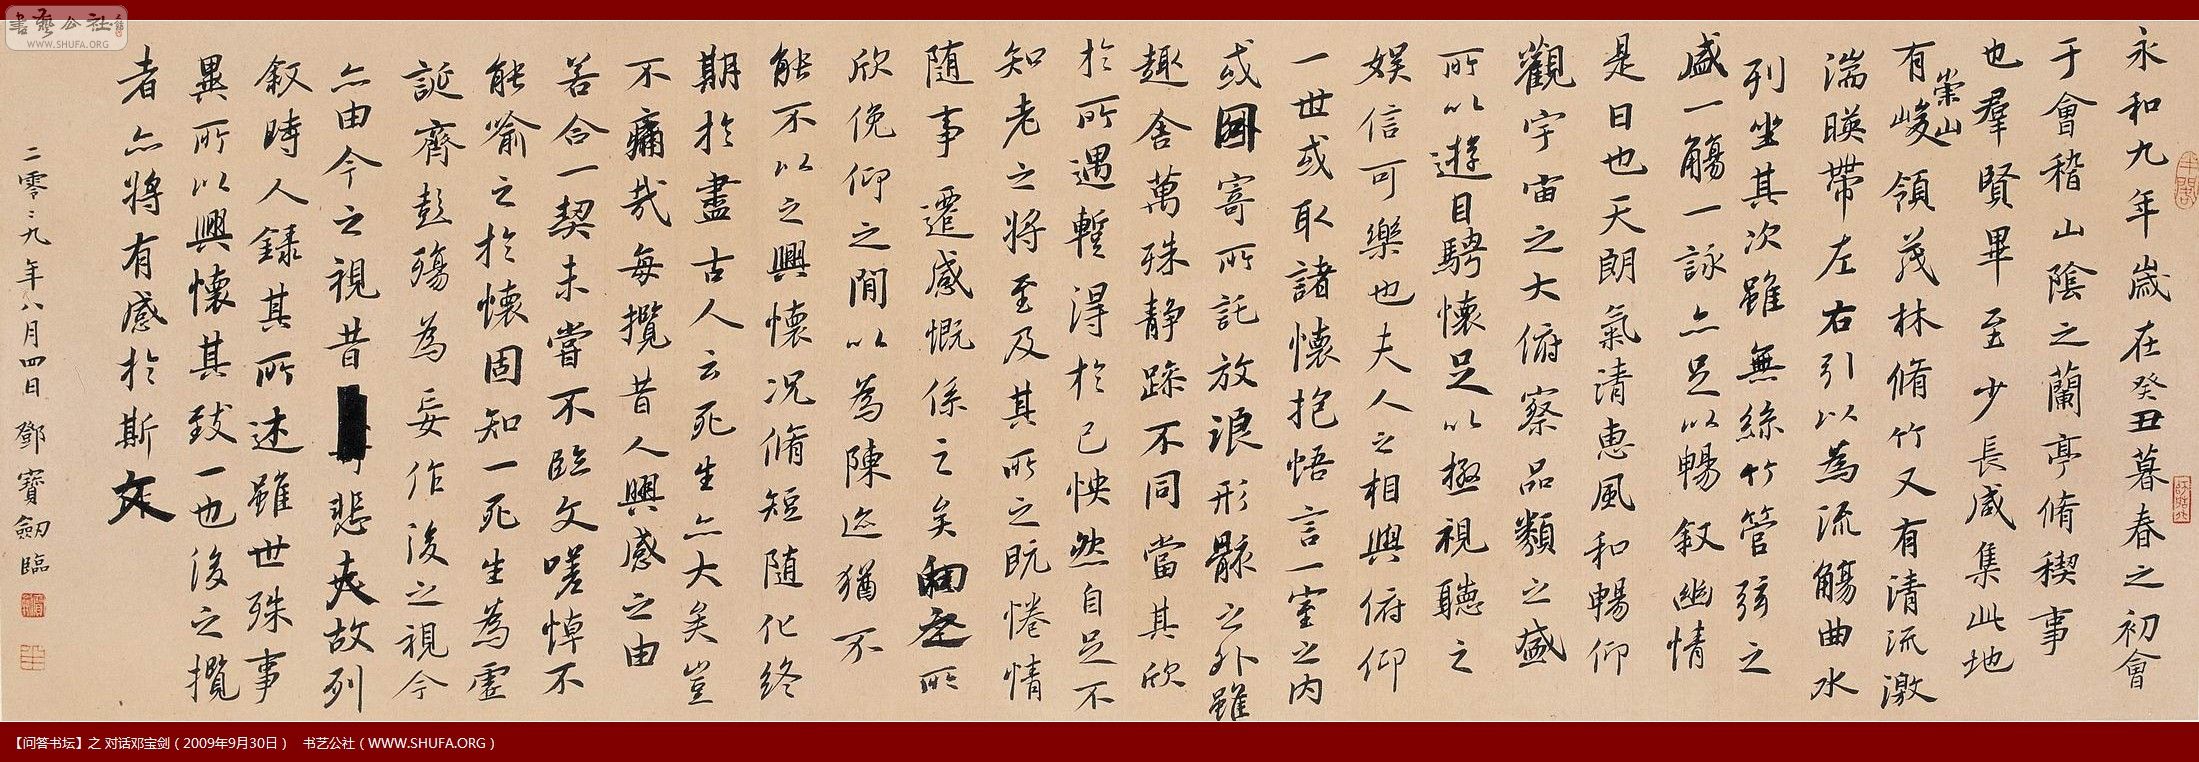 永和九年歲在癸丑暮春之初會
于會稽山陰之蘭亭脩稧事
也羣賢畢至少長咸集此地
有崇山峻領茂林脩竹又有清流激
湍暎帶左右引以為流觴曲水
列坐其次雖無絲竹管弦之
盛一觴一詠亦足以暢敘幽情
是日也天朗氣清惠風和暢仰
觀宇宙之大俯察品類之盛
所以遊目騁懷足以極視聽之
娛信可樂也夫人之相與俯仰
一世或取諸懷抱悟言一室之內
或因寄所託放浪形骸之外雖
趣舍萬殊靜躁不同當其欣
於所遇暫得於己怏然自足不
知老之將至及其所之既惓情
隨事遷感慨係之矣向之所
欣俛仰之閒以為陳迹猶不
能不以之興懷況脩短隨化終
期於盡古人云死生亦大矣豈
不痛哉每攬昔人興感之由
若合一契未嘗不臨文嗟悼不
能喻之於懷固知一死生為虛
誕齊彭殤為妄作後之視今
亦由今之視昔悲夫故列
敘時人錄其所述雖世殊事
異所以興懷其致一也後之攬
者亦將有感於斯文
二零零九年八月四日 鄧寶劍臨
书艺公社
WWW.SHUFA.ORG
【问答书坛】之 对话邓宝剑（2009年9月30日） 书艺公社（WWW.SHUFA.ORG）